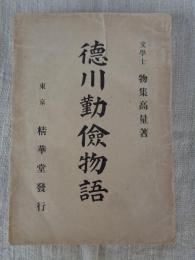 文學士 物集高量著
德川勤儉物語
東京 精華堂發行